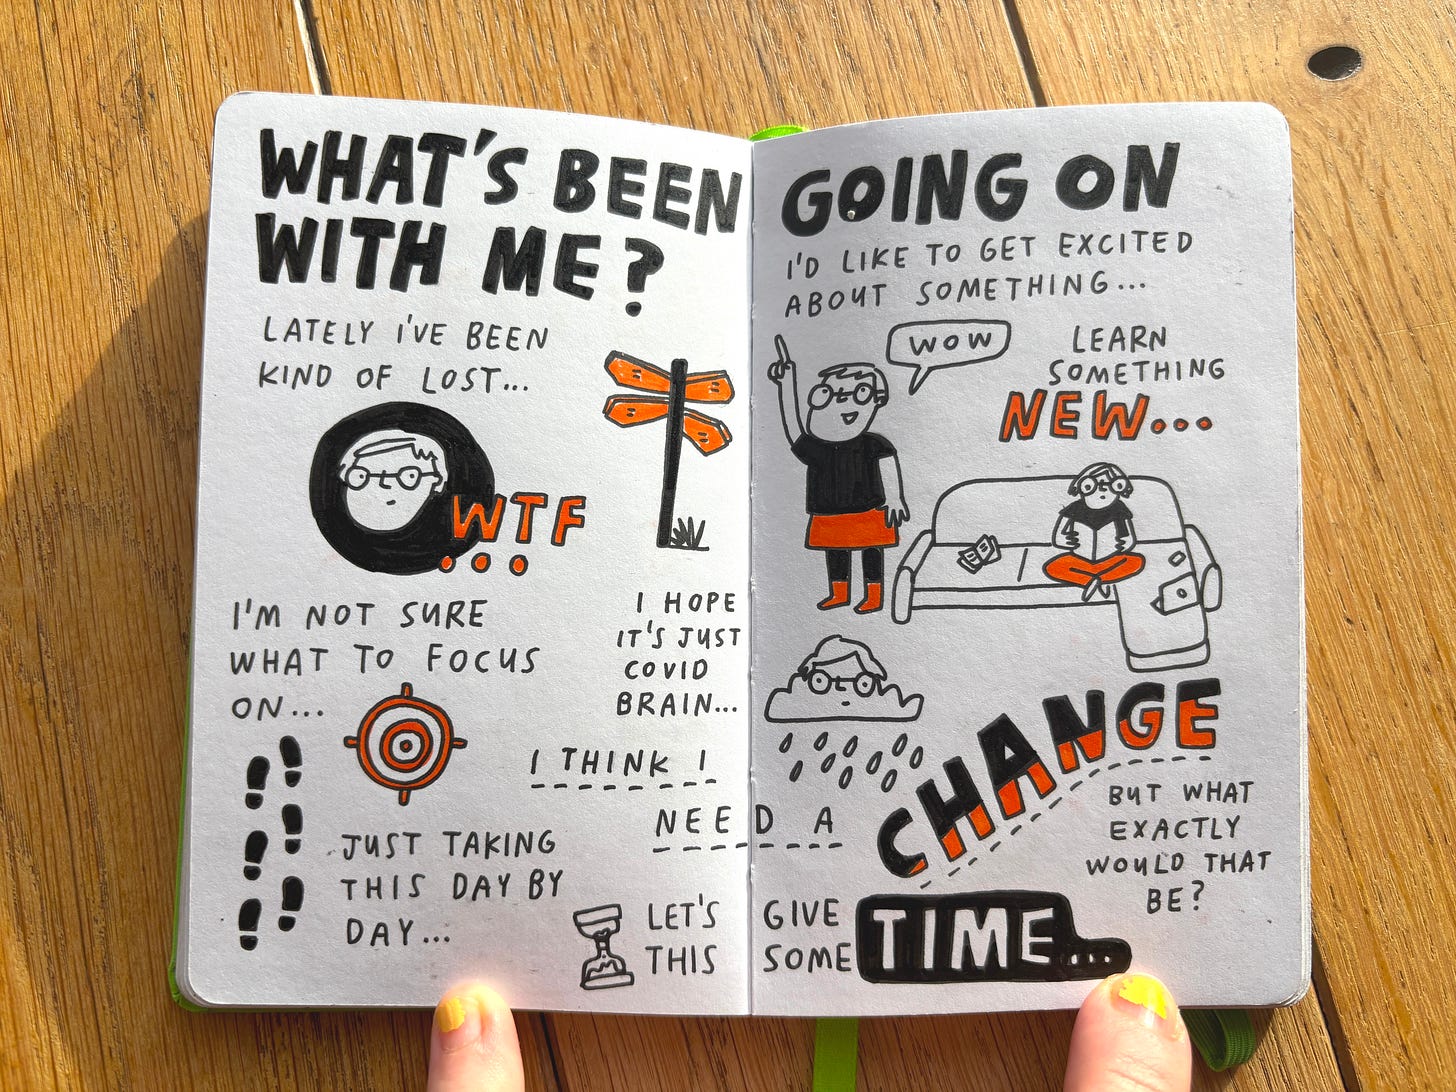 WHAT'S BEEN GOING ON
WITH ME?
LATELY I'VE BEEN
KIND OF LOST...
WTF
...
I'M NOT SURE
WHAT TO FOCUS
ON...
I HOPE
IT'S JUST
COVID
BRAIN...
JUST TAKING
THIS DAY BY
DAY...
I'D LIKE TO GET EXCITED
ABOUT SOMETHING...
WOW
LEARN
SOMETHING
NEW...
I THINK I
NEED A
CHANGE
BUT WHAT
EXACTLY
WOULD THAT
BE?
LET'S GIVE
THIS SOME TIME...